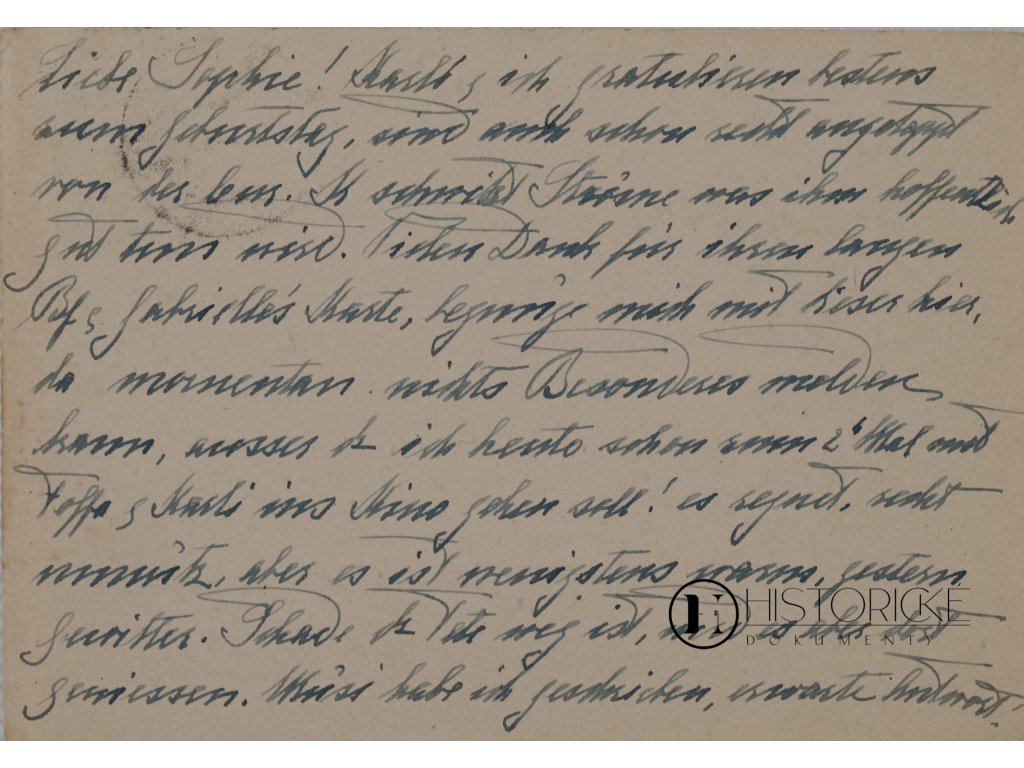 Liebe Sophie! Karli & ich gratulieren bestens
zum Geburtstag, sind auch schon recht
von der Cur. Er schwitzt Ströme was ihm hoffentlich
gut tun wird. Vielen Dank für ihren langen
Bf & Gabrielle's Karte, begnüge mich mit dieser hier,
da momentan nichts Besonderes melden
kann, ausser dz ich heute schon zum 2t Mal mit
& Karli ins Kino gehen soll! es regnet, recht
unnütz, aber es ist wenigstens warm, gestern
Gewitter. Schade dz weg ist,
geniessen. habe ich geschrieben, erwarte Antwort.
HISTORICKÉ
DOKUMENTY